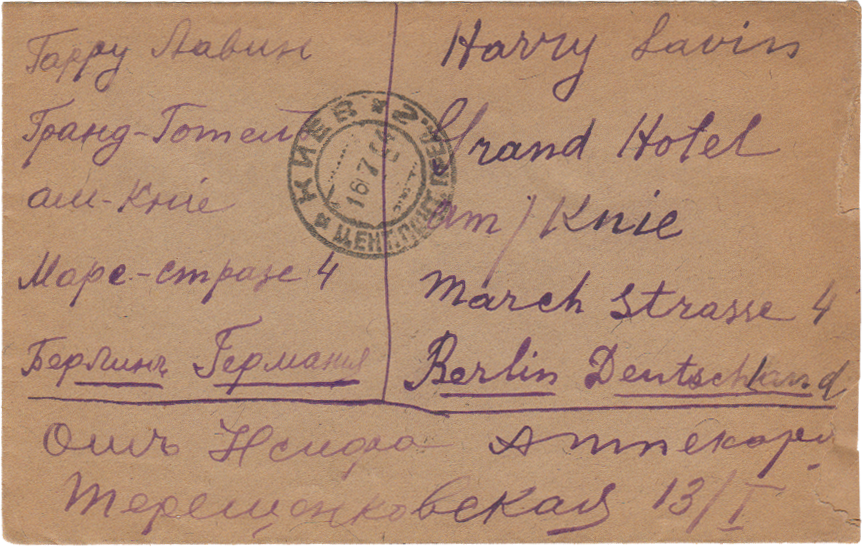 Гарру Лавин
Гранд-Готель
ам-Кніе
Марс-стразе 4
Берлинъ Германия
Harry Lavin
Grand Hotel
am / Knie
March Strasse 4
Berlin Deutschland
КИЕВ
16.7
Отъ Іосифа Аптекаря
Терещенковская 13/I